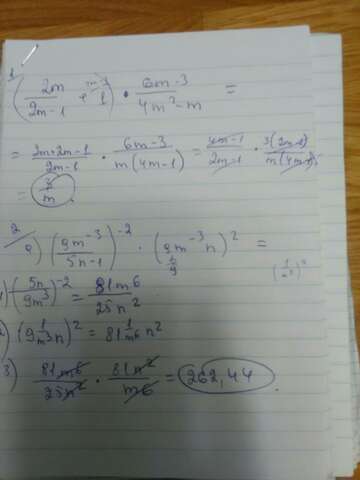 1.
(2m/2m-1 + 2m-1/1) · 6m-3/4m²-m =
= 2m+2m-1/2m-1 · 6m-3/m(4m-1) = 4m-1/2m-1 · 3(2m-1)/m(4m-1)
= 3/m.
2
(9m⁻³/5n⁻¹)⁻² · (9m⁻³n)² =
1) (5n/9m³)⁻² = 81m⁶/25n²
2) (9 1/m³ n)² = 81 1/m⁶ n²
3) 81m⁶/25n² · 81n²/m⁶ = 262,44